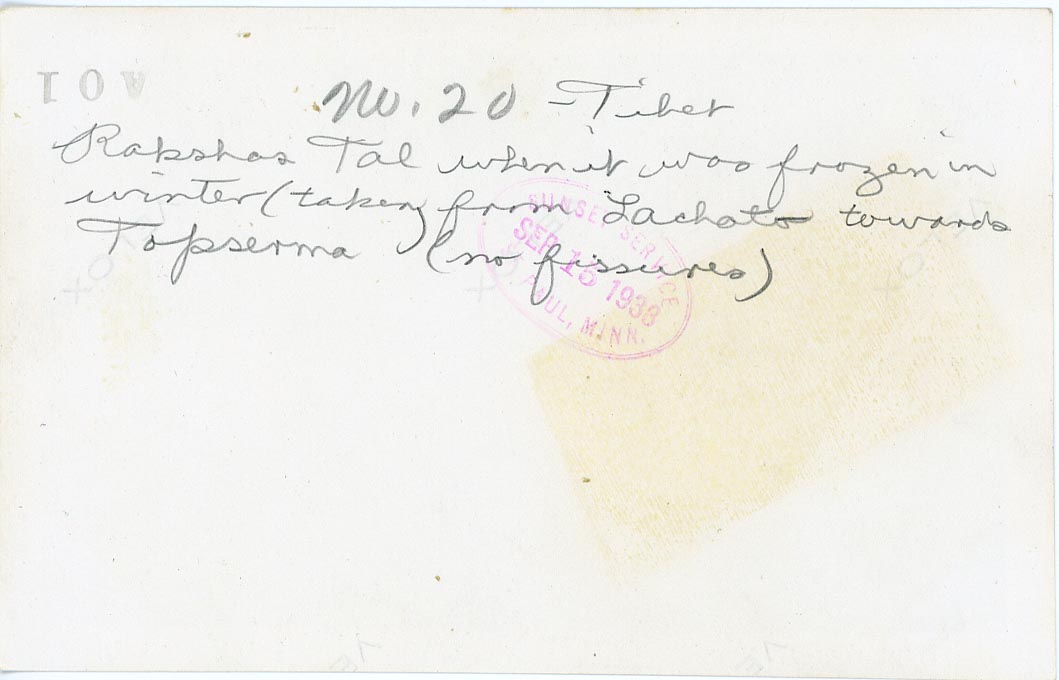 A01
No. 20 - Tibet
Rakshas Tal when it was frozen in
winter (taken from Lachato towards
Topserma) (no fissures)
SUNSET SERVICE
SEP 15 1938
ST. PAUL, MINN.
VE
VE